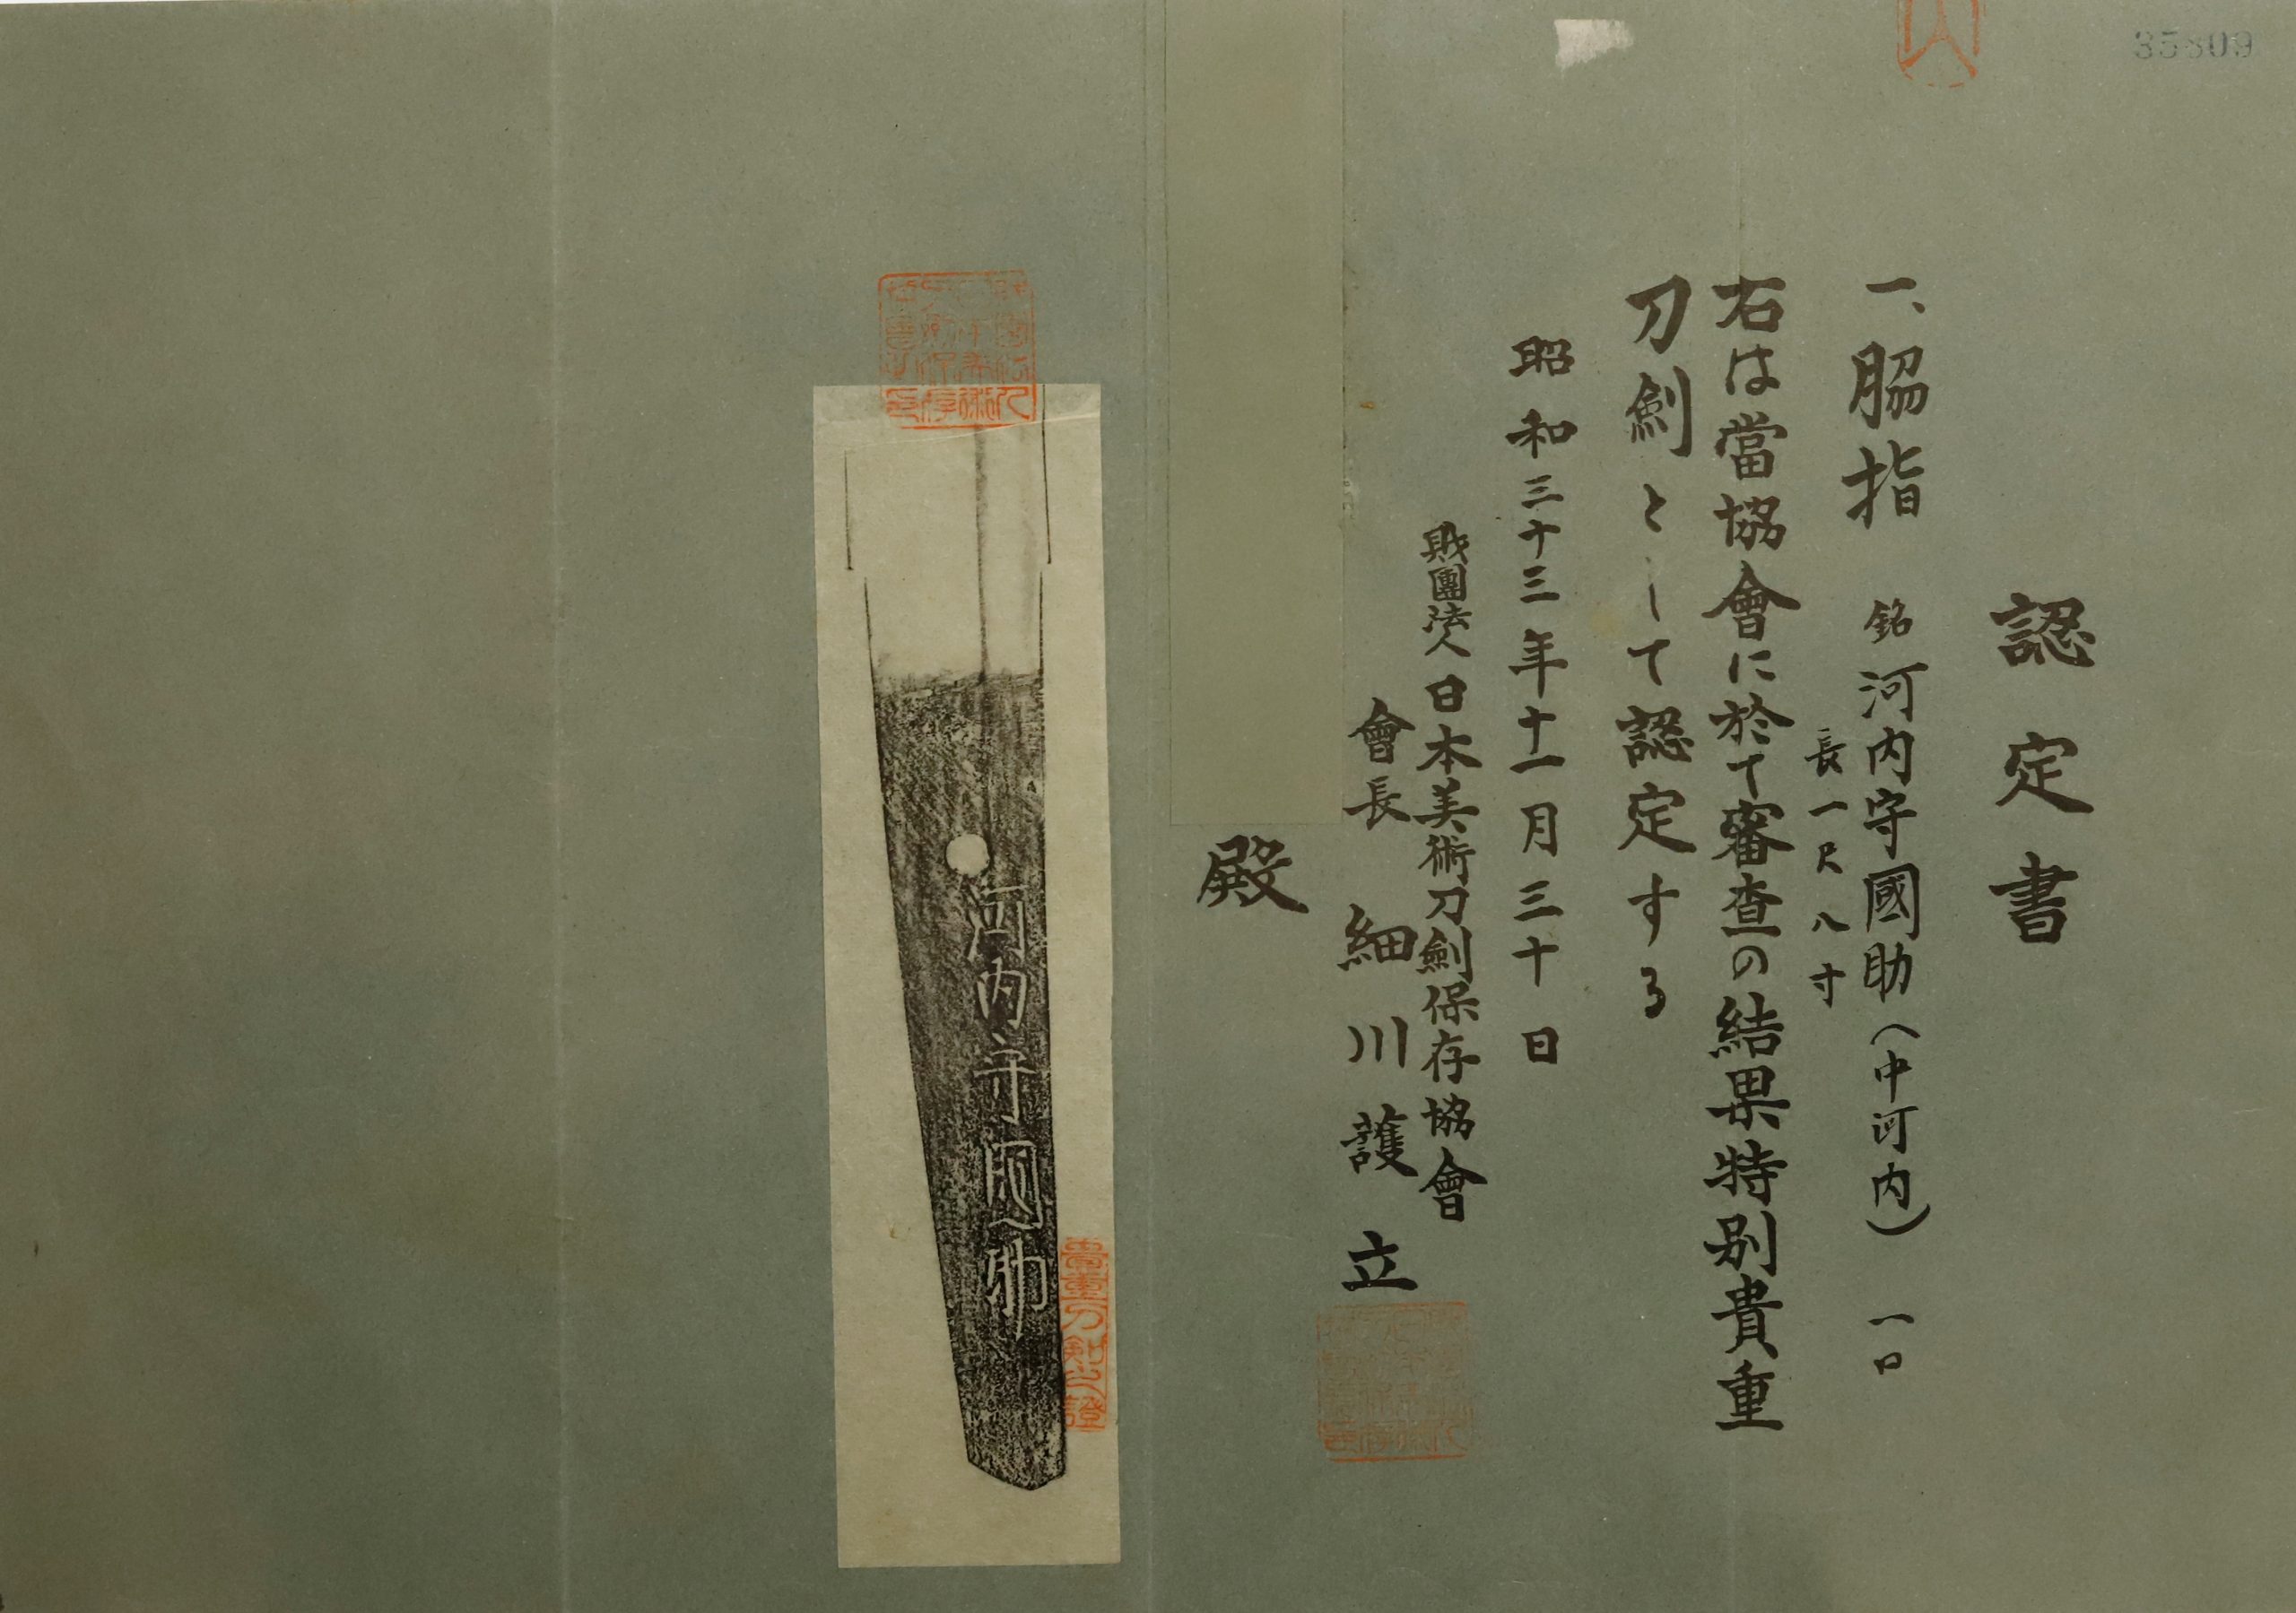 35809
認定書
一、脇指 銘 河内守國助(中河内) 一口
長一尺八寸
右は當協會に於て審査の結果特別貴重
刀劍として認定する
昭和三十三年十一月三十日
財團法人日本美術刀劍保存協會
會長 細川護立
殿
河内守国助
貴重刀剣之證